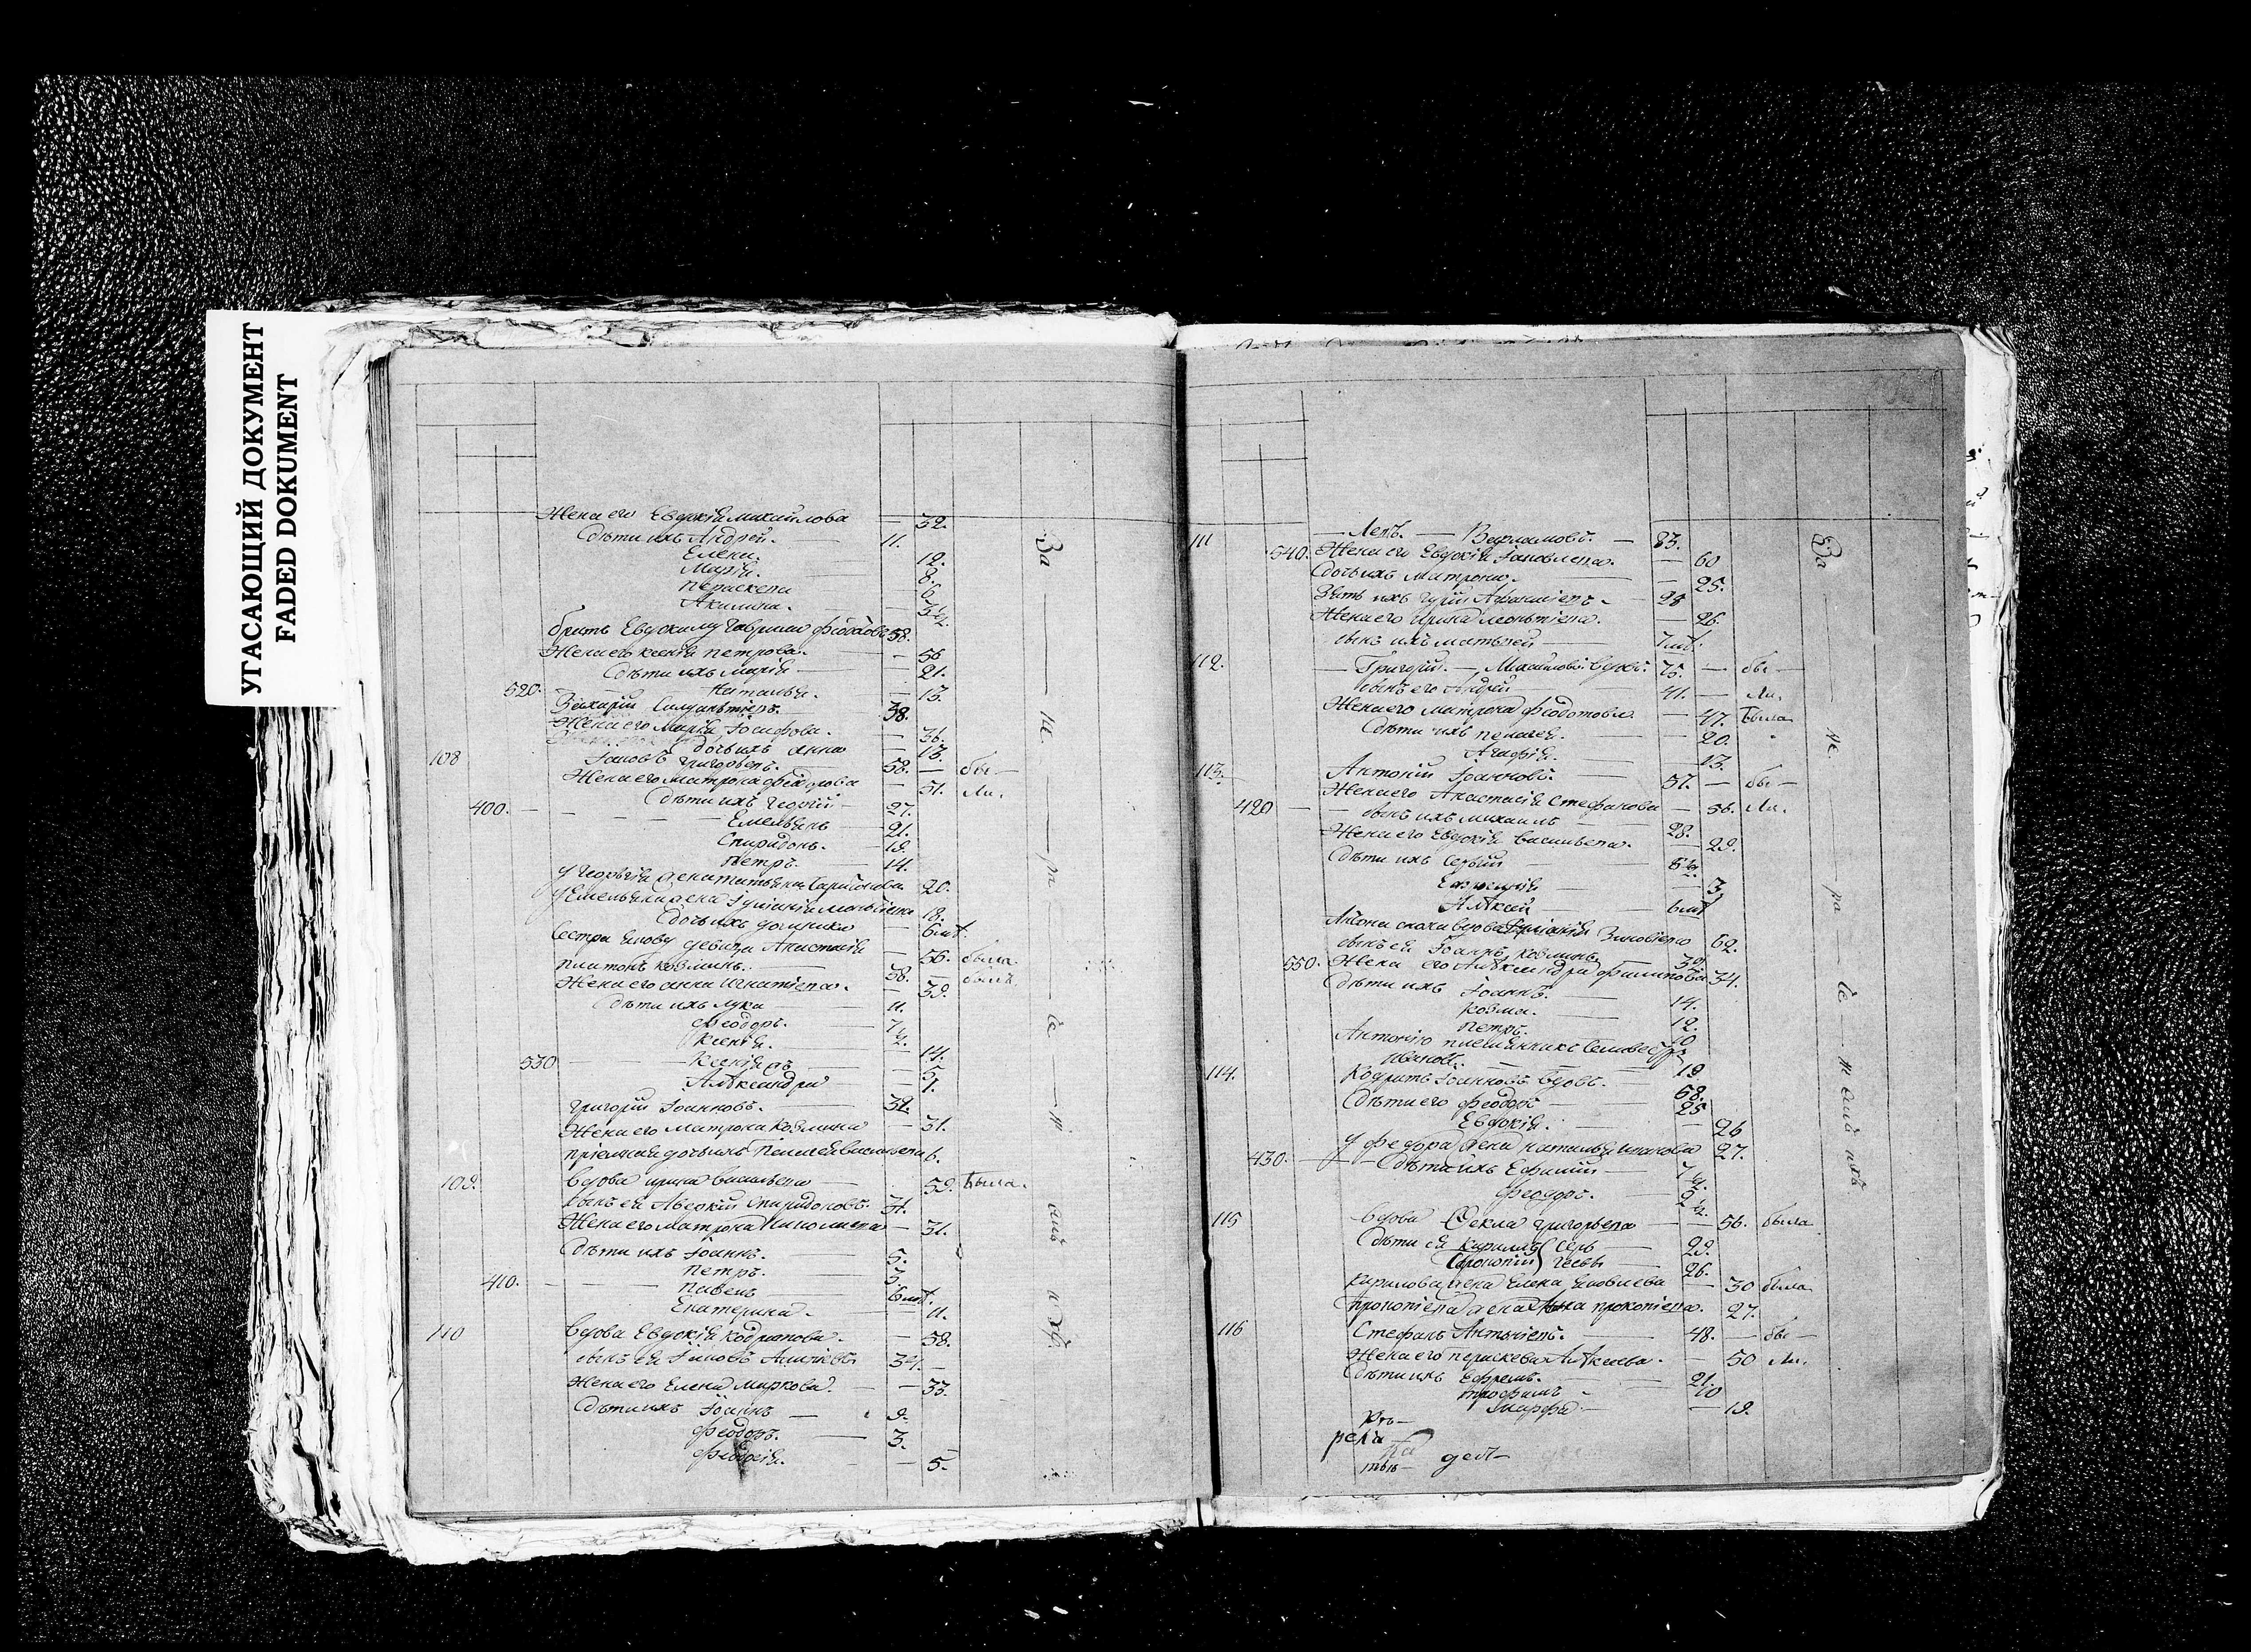 УГАСАЮЩИЙ ДОКУМЕНТ
FADED DOKUMENT
Жена его Евдокія Михайлова — 32.
Дѣти ихъ Андрей. 11.
Елена. 12.
Марія. 8.
Параскева 6
Акилина. 3½
братъ Евдокиму Гавріилъ Феодотовъ 58.
Жена его Ксенія Петрова. — 56
Дѣти ихъ Марія — 21.
520. Наталья. — 13.
Захарій 38.
Жена его Марія Іосифова. — 36.
дочь ихъ Анна — 13.
108 Іаковъ Григорьевъ. 58. — бы —
Жена его Матрона Феодорова — 51. ли.
Дѣти ихъ Георгій
400. — 27.
Емельянъ 21.
Спиридонъ. 19.
Петръ. 14.
у Георгія жена Татьяна Харитонова 20.
у Емельяна жена Іуліанія 18.
дочь ихъ Домника — 6 мѣ.
Сестра Іакову девица Анастасія — 56. была.
Платонъ Козминъ. 38. — былъ.
Жена его Анна Игнатіева. — 39.
Дѣти ихъ Лука — 11.
Феодоръ. 7½
Ксенія. — 14.
530 Ксенія 5.
Александра — 1.
Григорій Іоанновъ. 32.
Жена его Матрона Козмина — 31.
пріемная дочь ихъ Пелагея Васильева 6.
109. Вдова Ирина Васильева — 59. Была.
Сынъ ея Аверкій Спиридоновъ. 31.
Жена его Матрона — 31.
Дѣти ихъ Іоаннъ. 5.
Петръ. 3.
410. Павелъ 6 мѣ.
Екатерина. — 11.
110 Вдова Евдокія Кодратова. — 58.
сынъ ея Іаковъ 34. —
Жена его Елена Маркова. — 33.
Дѣти ихъ Іоаннъ — 9.
Феодоръ. — 3.
Феодосія. — 5.
За — не — ра — се — ніемъ ихъ
111 — Левъ. — Варламовъ. — 83.
540. Жена его Евдокія Іаковлева. — 60
Дочь ихъ Матрона. — 25.
Зять ихъ Гурій 28
Жена его Ирина Леонтіева. — 26.
сынъ ихъ Матвей 7 мѣ.
112. — Григорій. — Михайловъ Вдовъ. 75. — бы —
сынъ его Андрей 41. — ли.
Жена его Матрона Феодотова — 47. Была
Дѣти ихъ Пелагея. — 20.
Агафія. — 13.
113. Антоній Іоанновъ. 57. — бы —
Жена его Анастасія Стефанова — 56. ли.
420 — сынъ ихъ Михаилъ 28.
Жена его Евдокія Васильева. — 29.
Дѣти ихъ Сергій 8½
3.
Алексій 6 мѣ
Антона сноха вдова Іуліанія Зиновіева 62.
сынъ ея Іоаннъ Козминъ 39
550. Жена его Александра Филипова 34.
Дѣти ихъ Іоаннъ. 14.
Козма. 12.
Петръ. 10
Антонію племянникъ Селивестръ
Ивановъ. 19
114. Кодратъ Іоанновъ Вдовъ. 68.
Дѣти его Феодоръ 25
Евдокія. — 26
у Федора жена Наталья 27.
430. — Дѣти ихъ Ефимій 7½
Феодоръ. 2½
115 Вдова Фекла Григорьева — 56. была
Дѣти ея Кирилъ Сер 29.
Прокопій геевы 26.
Кирилова жена Елена Яковлева — 30 была
Прокопіева жена Анна Прокопіева. 27.
116 Стефанъ Антоніевъ. 48. — бы —
Жена его Параскева Алексеева. — 50 ли.
Дѣти ихъ Ефремъ. 21.
Трофимъ 10
Марфа — 19.
За — не — ра — се — ніемъ ихъ